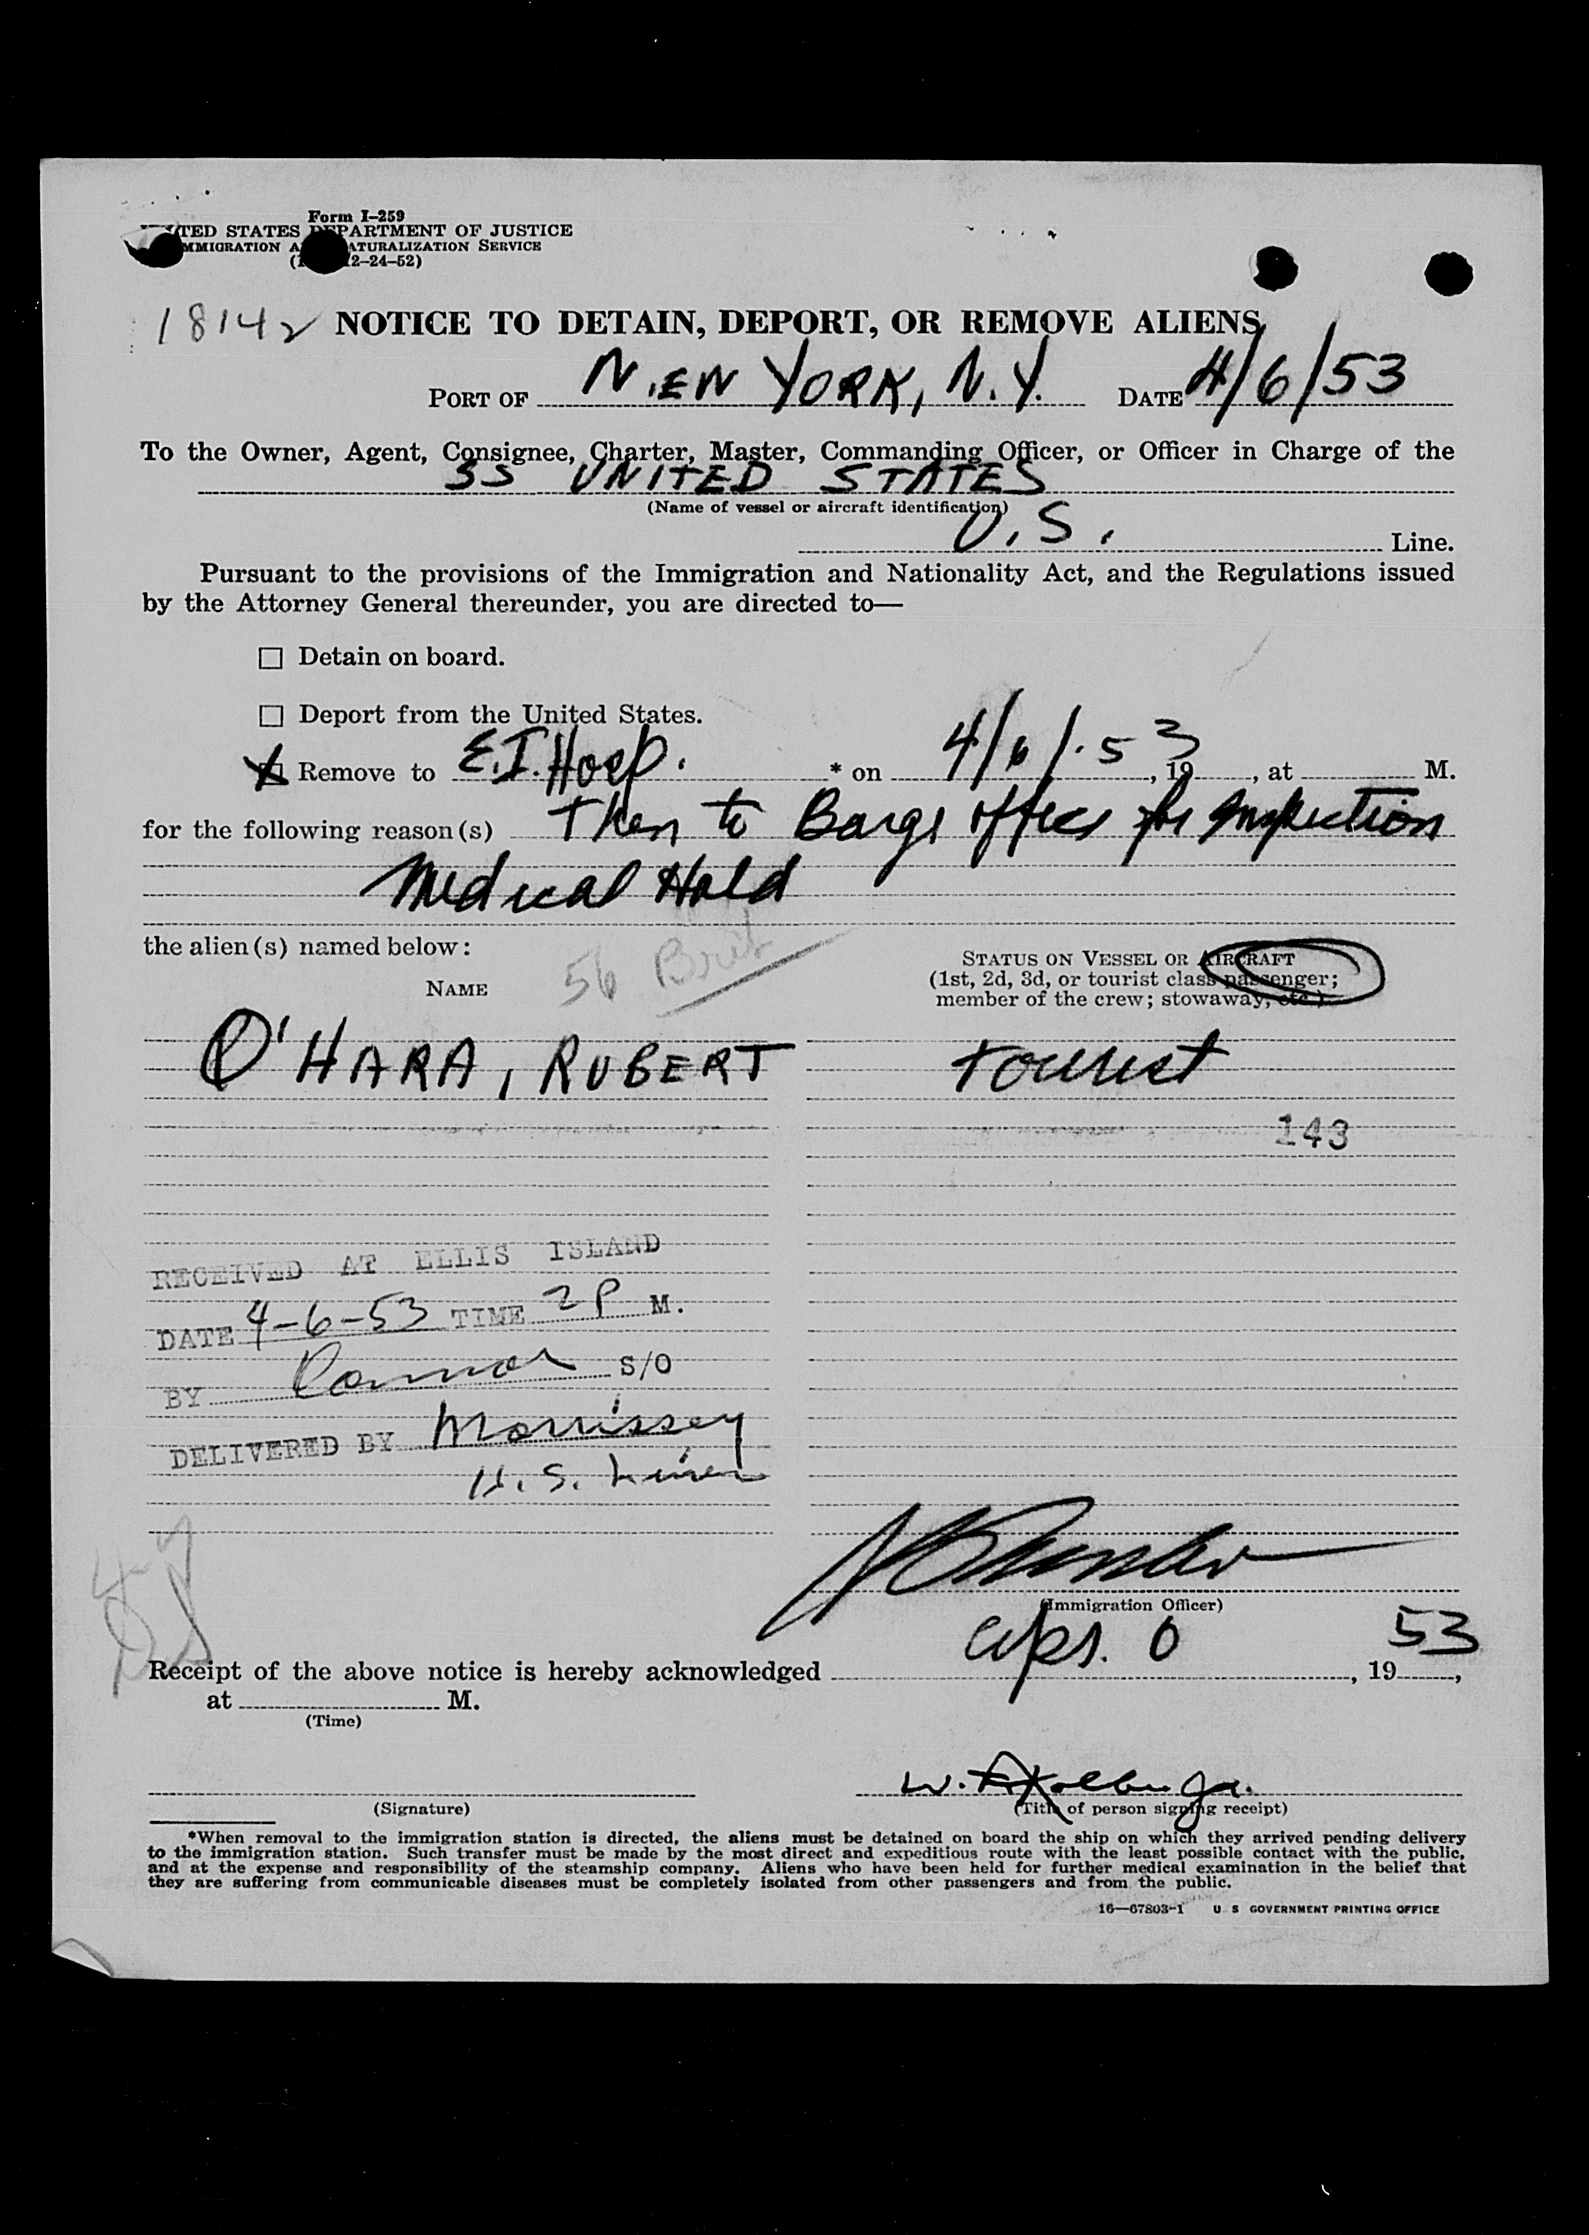 Form I-259
UNITED STATES DEPARTMENT OF JUSTICE
IMMIGRATION AND NATURALIZATION SERVICE
2-24-52)
18142 NOTICE TO DETAIN, DEPORT, OR REMOVE ALIENS
PORT OF NEW YORK, N.Y. DATE 4/6/53
To the Owner, Agent, Consignee, Charter, Master, Commanding Officer, or Officer in Charge of the
SS UNITED STATES
(Name of vessel or aircraft identification)
U.S. Line.
Pursuant to the provisions of the Immigration and Nationality Act, and the Regulations issued
by the Attorney General thereunder, you are directed to—
Detain on board.
Deport from the United States.
Remove to E.I. Hosp. * on 4/6/53, 19, at M.
for the following reason(s) Then to Barge office for Inspection
Medical Hold
the alien(s) named below:
56 Brit
NAME
STATUS ON VESSEL OR AIRCRAFT
(1st, 2d, 3d, or tourist class passenger;
member of the crew; stowaway, etc.)
O'HARA, ROBERT tourist
143
RECEIVED AT ELLIS ISLAND
DATE 4-6-53 TIME 2 P M.
BY Connor S/O
DELIVERED BY Morrissey
U.S. Lines
(Immigration Officer)
Receipt of the above notice is hereby acknowledged Apr. 6, 1953,
at M.
(Time)
(Signature)
(Title of person signing receipt)
*When removal to the immigration station is directed, the aliens must be detained on board the ship on which they arrived pending delivery
to the immigration station. Such transfer must be made by the most direct and expeditious route with the least possible contact with the public,
and at the expense and responsibility of the steamship company. Aliens who have been held for further medical examination in the belief that
they are suffering from communicable diseases must be completely isolated from other passengers and from the public.
16—67803-1 U S GOVERNMENT PRINTING OFFICE